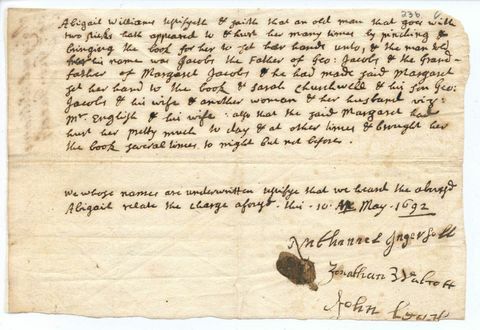 236
Abigail Williams testifyeth & saith that an old man that goes with
two sticks hath appeared to & hurt her many times by pinching &
bringing the book for her to set her hand unto, & the man told
her his name was Jacobs the Father of Geo: Jacobs & the Grand-
father of Margaret Jacobs & he had made said Margaret
set her hand to the book & Sarah Churchwell & his son Geo:
Jacobs & his wife & another woman & her husband viz:
Mr. English & his wife: also that the said Margaret had
hurt her pretty much to day & at other times & brought her
the book several times to night but not before.
we whose names are underwritten testifye that we heard the abovesd
Abigail relate the charge aforesd. this 10. May. 1692
Nathanael Ingersoll
Jonathan Walcott
John